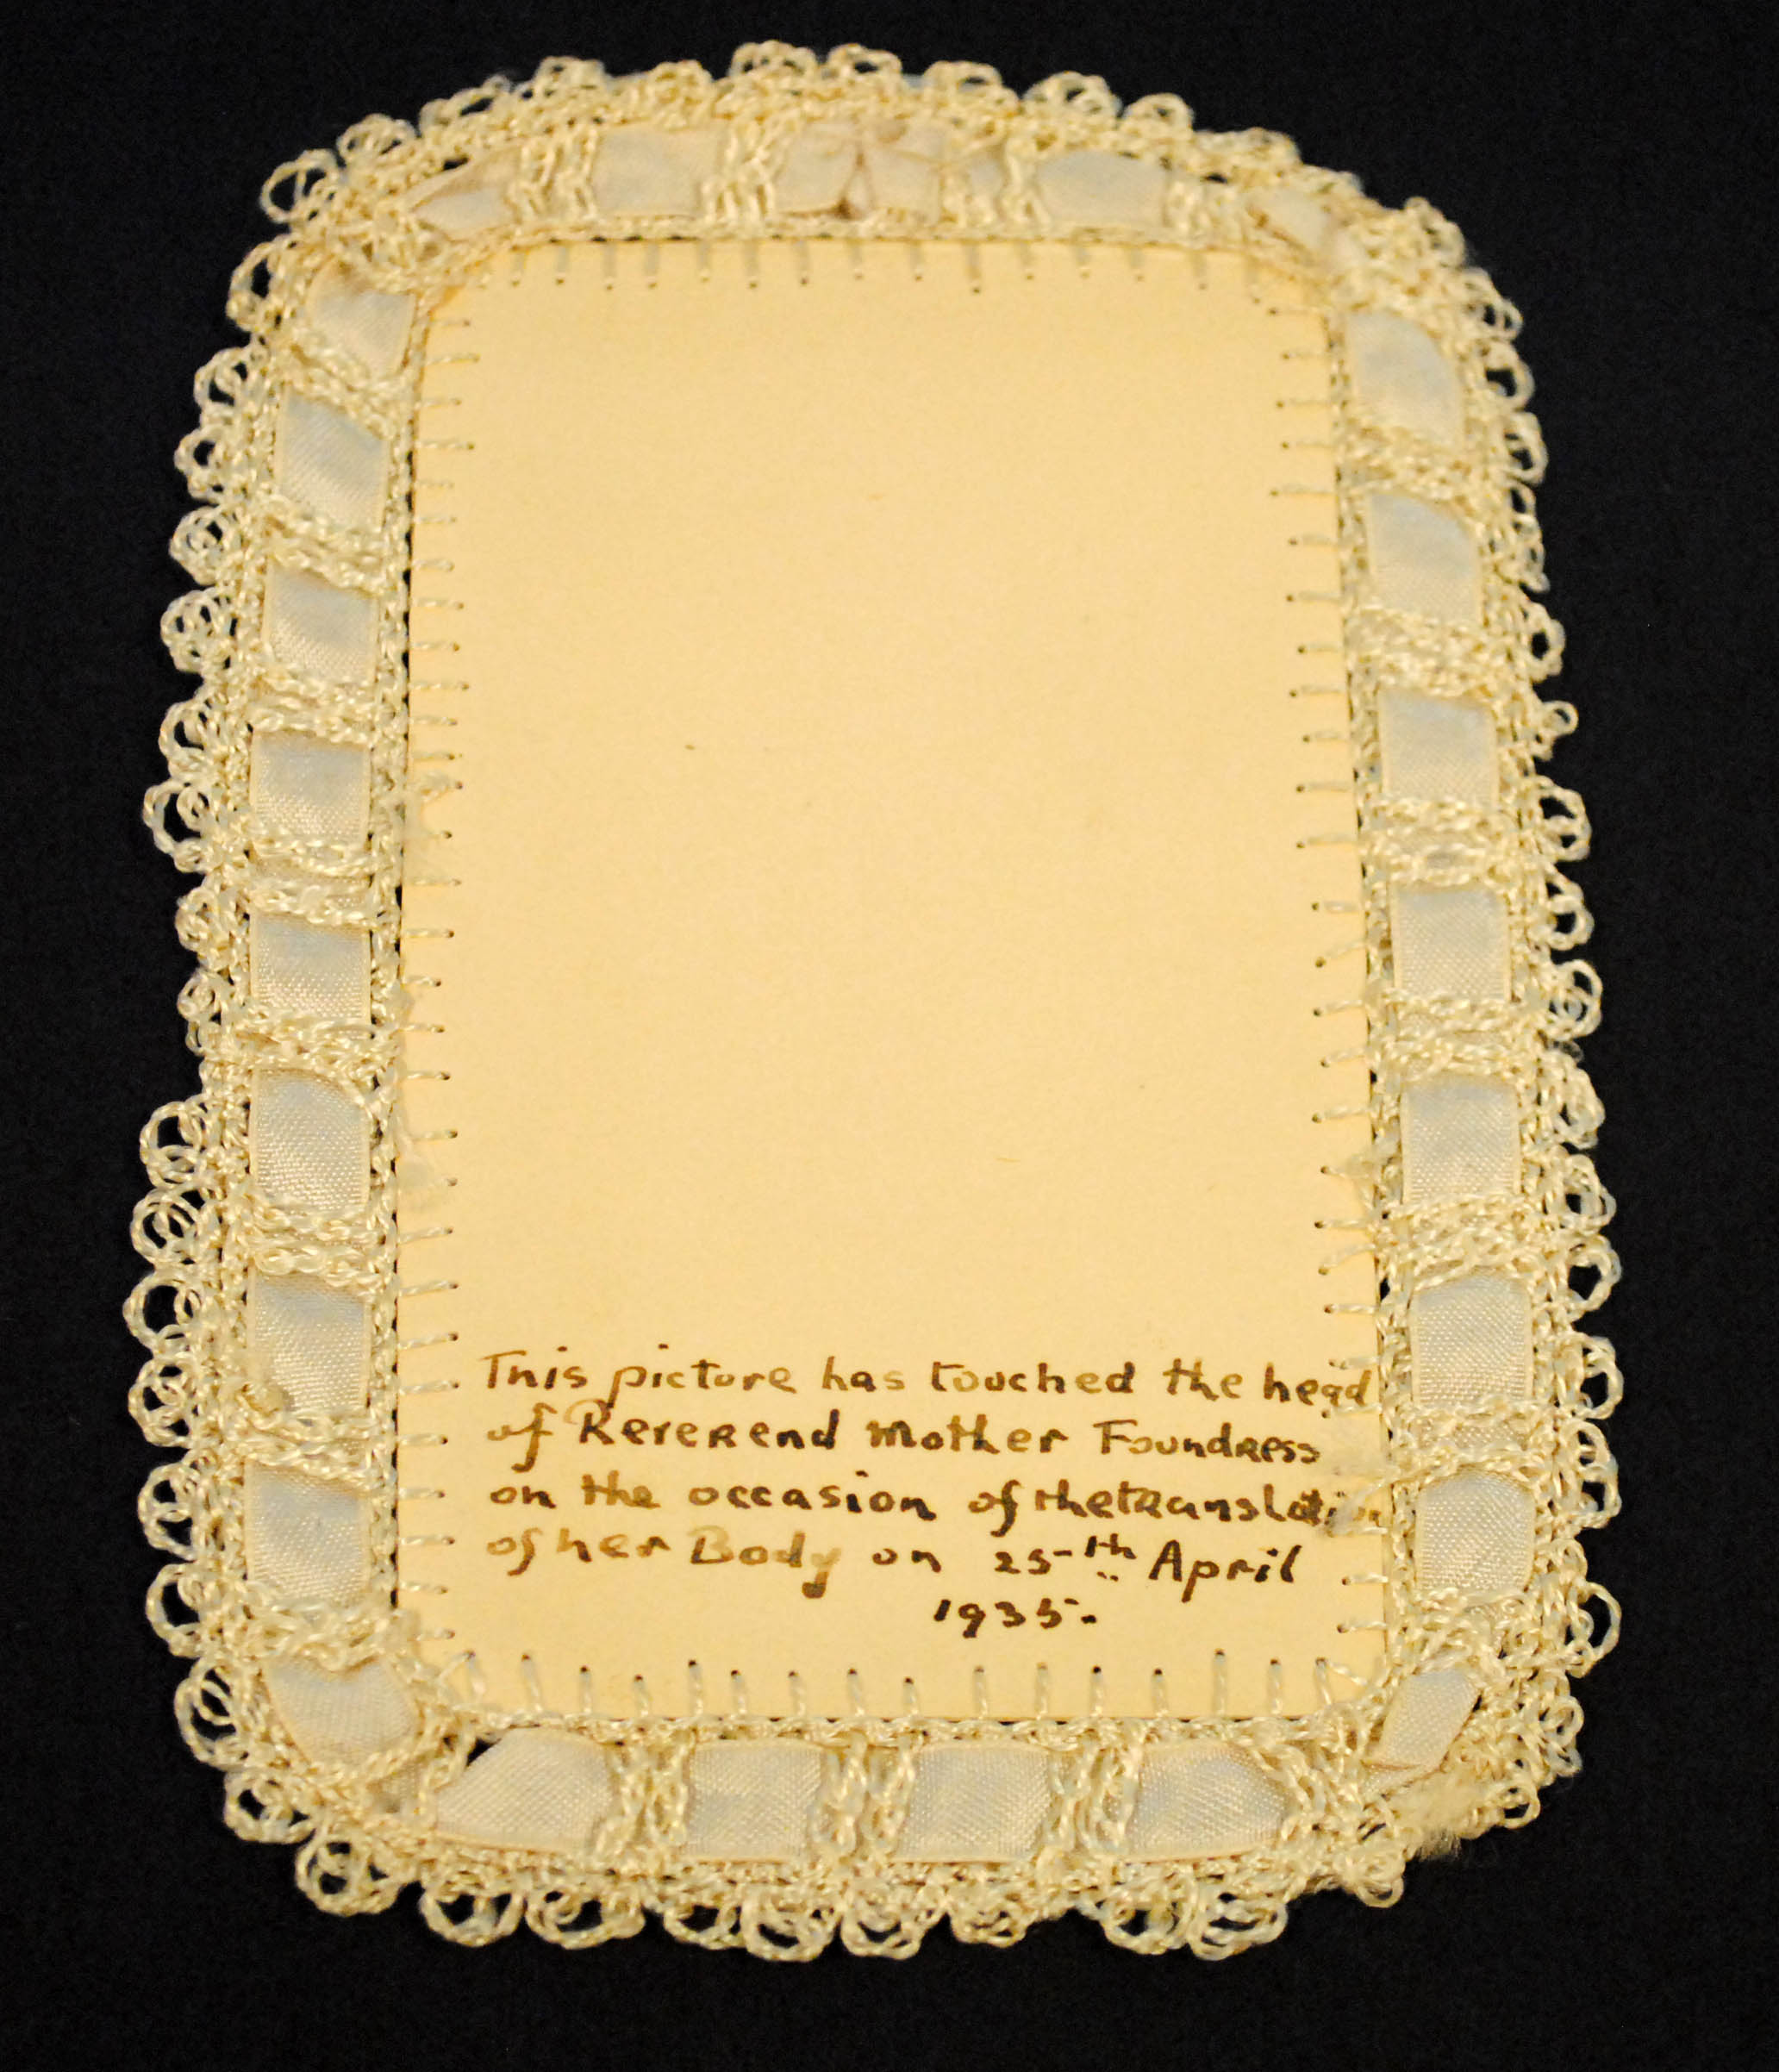 This picture has touched the head
of Reverend Mother Foundress
on the occasion of the translation
of her Body on 25th April
1935.